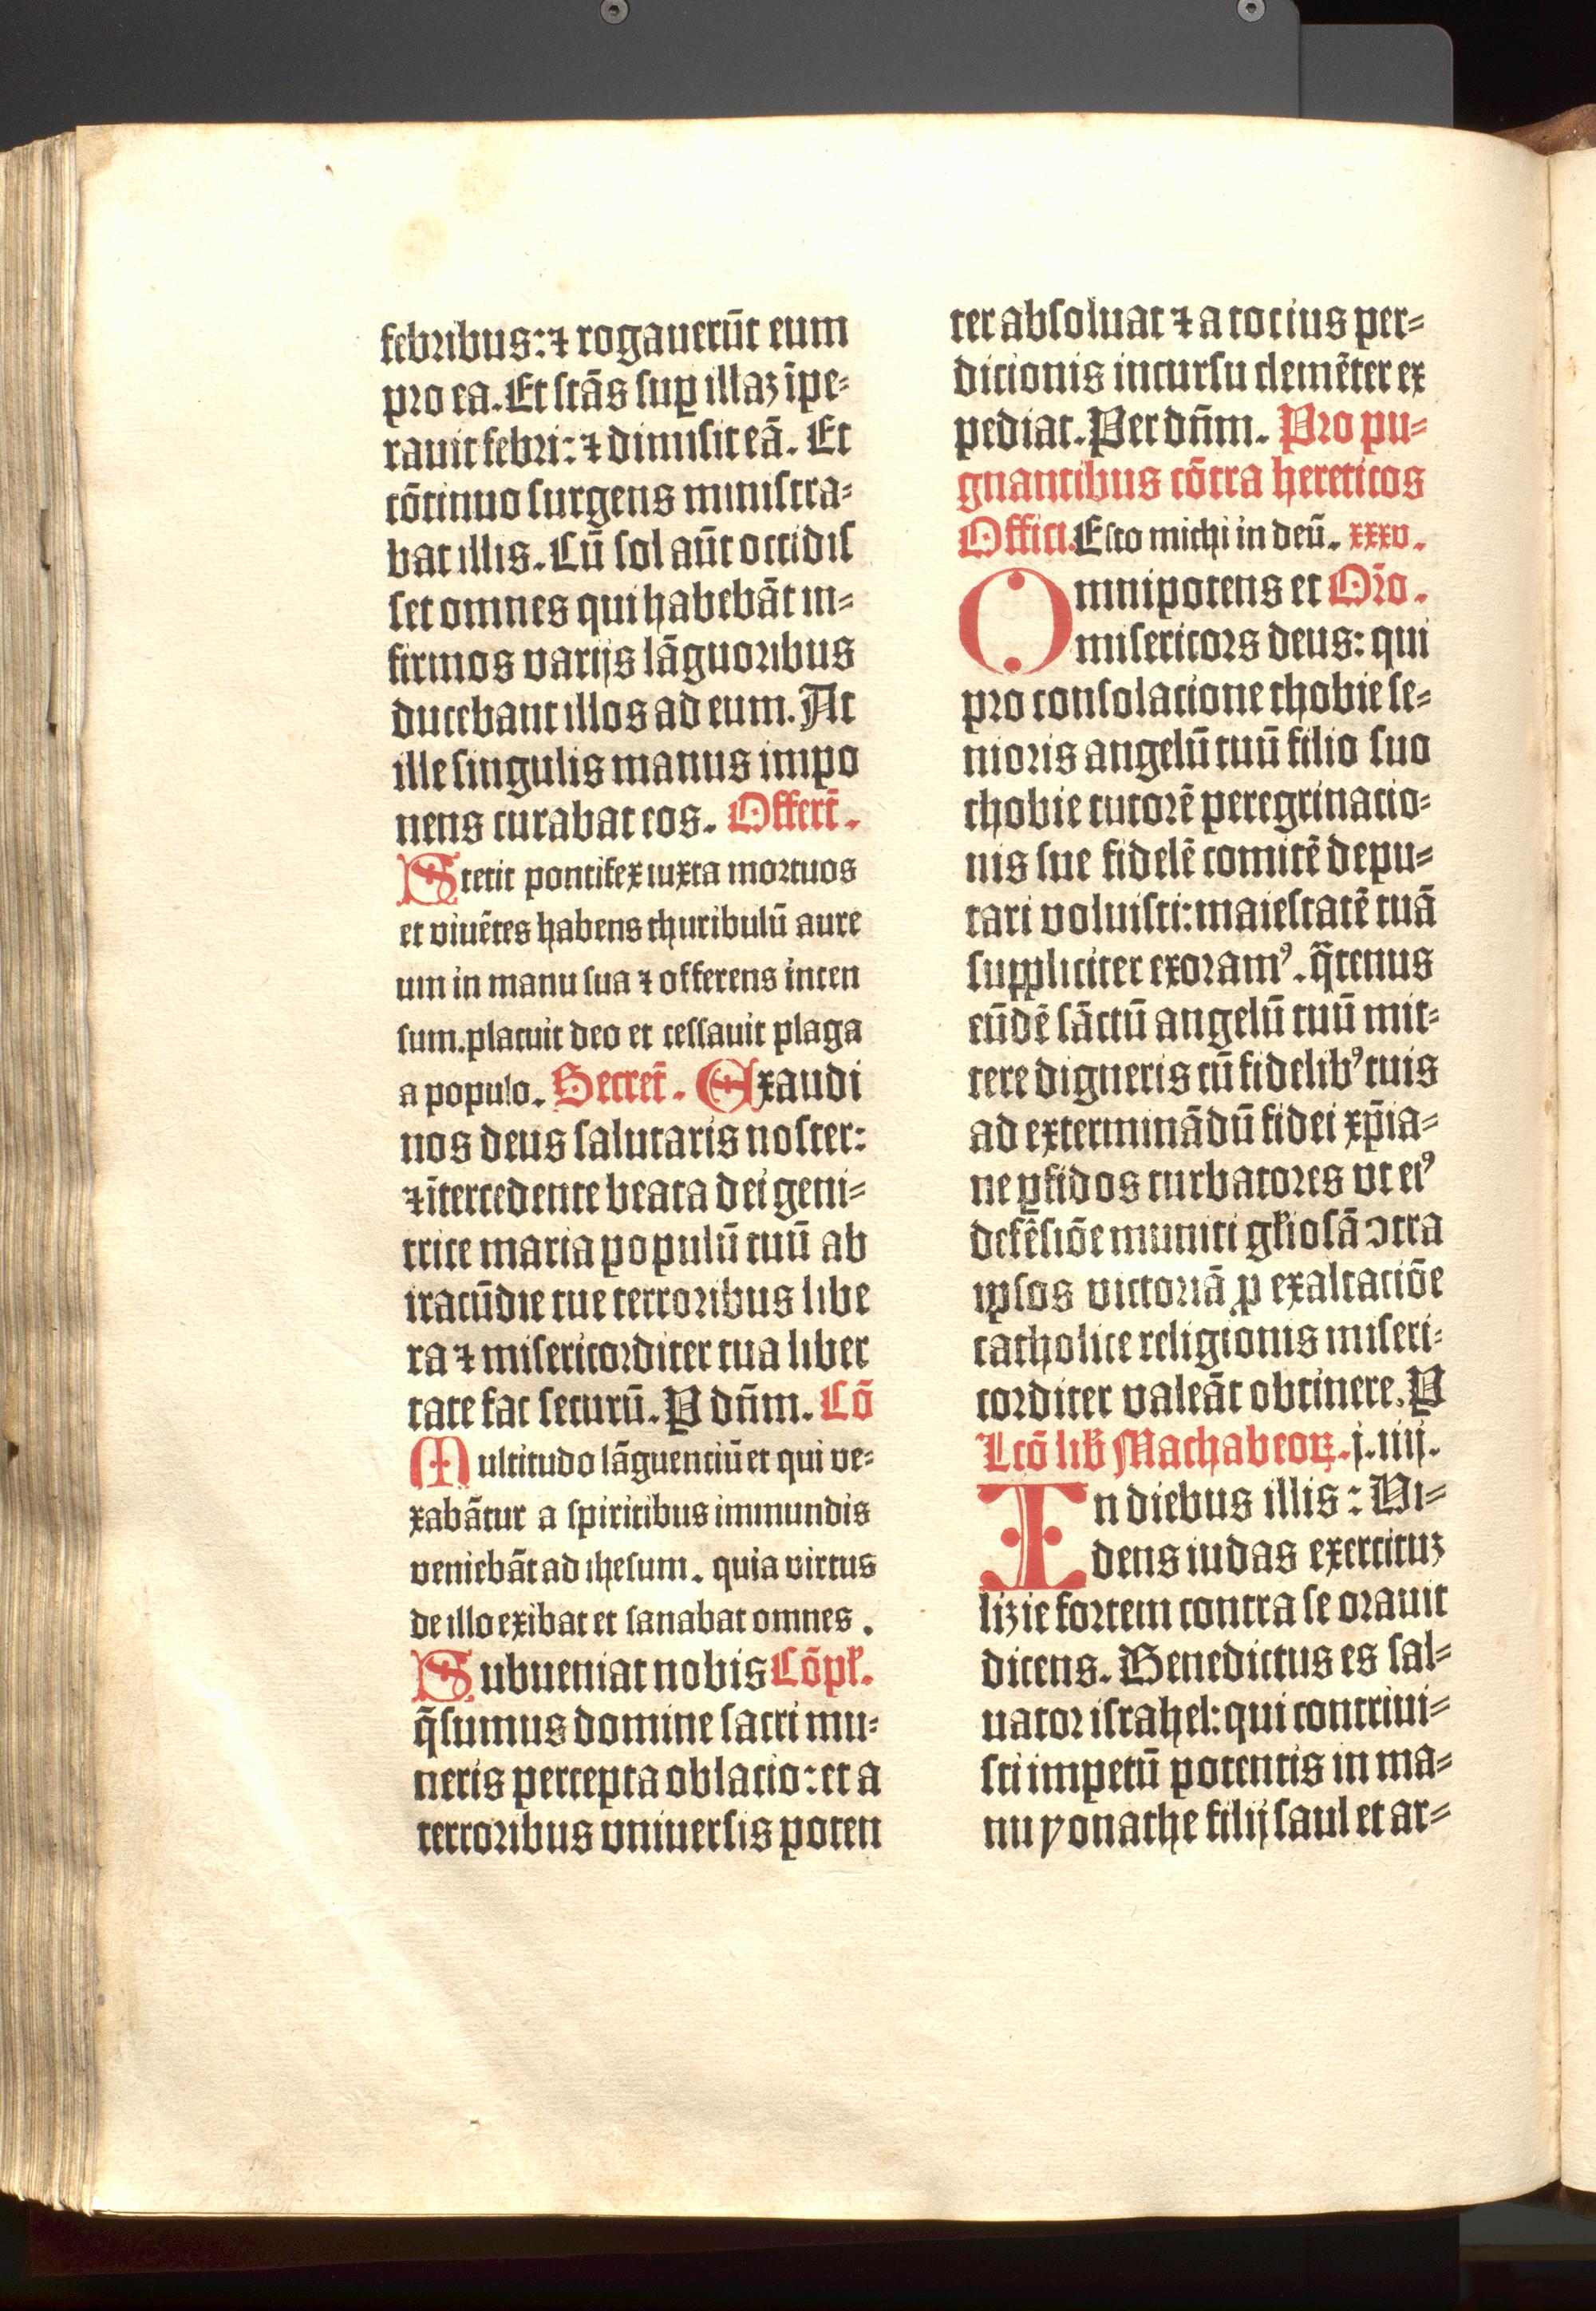 febribus: ⁊ rogauerūt eum
pro ea. Et stās sup̱ illaꝫ īpe⸗
rauit febri: ⁊ dimisit eā. Et
cōtinuo surgens ministra⸗
bat illis. Cū sol aūt occidis
set omnes qui habebāt in⸗
firmos varijs lāguoribus
ducebant illos ad eum. At
ille singulis manus impo
nens curabat eos. Offert̄.
Stetit pontifex iuxta mortuos
et viuētes habens thuribulū aure
um in manu sua ⁊ offerens incen
sum. placuit deo et cessauit plaga
a populo. Secret̄. Exaudi
nos deus salutaris noster:
⁊ ītercedente beata dei geni⸗
trice maria populū tuū ab
iracūdie tue terroribus libe
ra ⁊ misericorditer tua liber
tate fac securū. P dn̄m. Cō
Multitudo lāguenciū et qui ve⸗
xabātur a spiritibus immundis
veniebāt ad ihesum. quia virtus
de illo exibat et sanabat omnes.
Subueniat nobis Cōpł.
q̄sumus domine sacri mu⸗
neris percepta oblacio: et a
terroribus vniuersis poten
ter absoluat ⁊ a tocius per⸗
dicionis incursu clemēter ex
pediat. Per dn̄m. Pro pu⸗
gnantibus cōtra hereticos
Offici. Esto michi in deū. xxxv.
Omnipotens et Or̄o.
misericors deus: qui
pro consolacione thobie se⸗
nioris angelū tuū filio suo
thobie tutorē peregrinacio⸗
nis sue fidelē comitē depu⸗
tari voluisti: maiestatē tuā
suppliciter exoramꝰ. q̄tenus
eūdē sāctū angelū tuū mit⸗
tere digneris cū fidelibꝰ tuis
ad exterminādū fidei xp̄ia⸗
ne ꝑfidos turbatores vt eiꝰ
defēsiōe muniti gł̓iosā ↄtra
ipsos victoriā ꝓ exaltaciōe
catholice religionis miseri⸗
corditer valeāt obtinere. P
Lcō lib̄ Machabeoꝝ. j. iiij.
In diebus illis: Vi⸗
dens iudas exercituꝫ
lizie fortem contra se orauit
dicens. Benedictus es sal⸗
uator israhel: qui contriui⸗
sti impetū potentis in ma⸗
nu yonathe filij saul et ar⸗